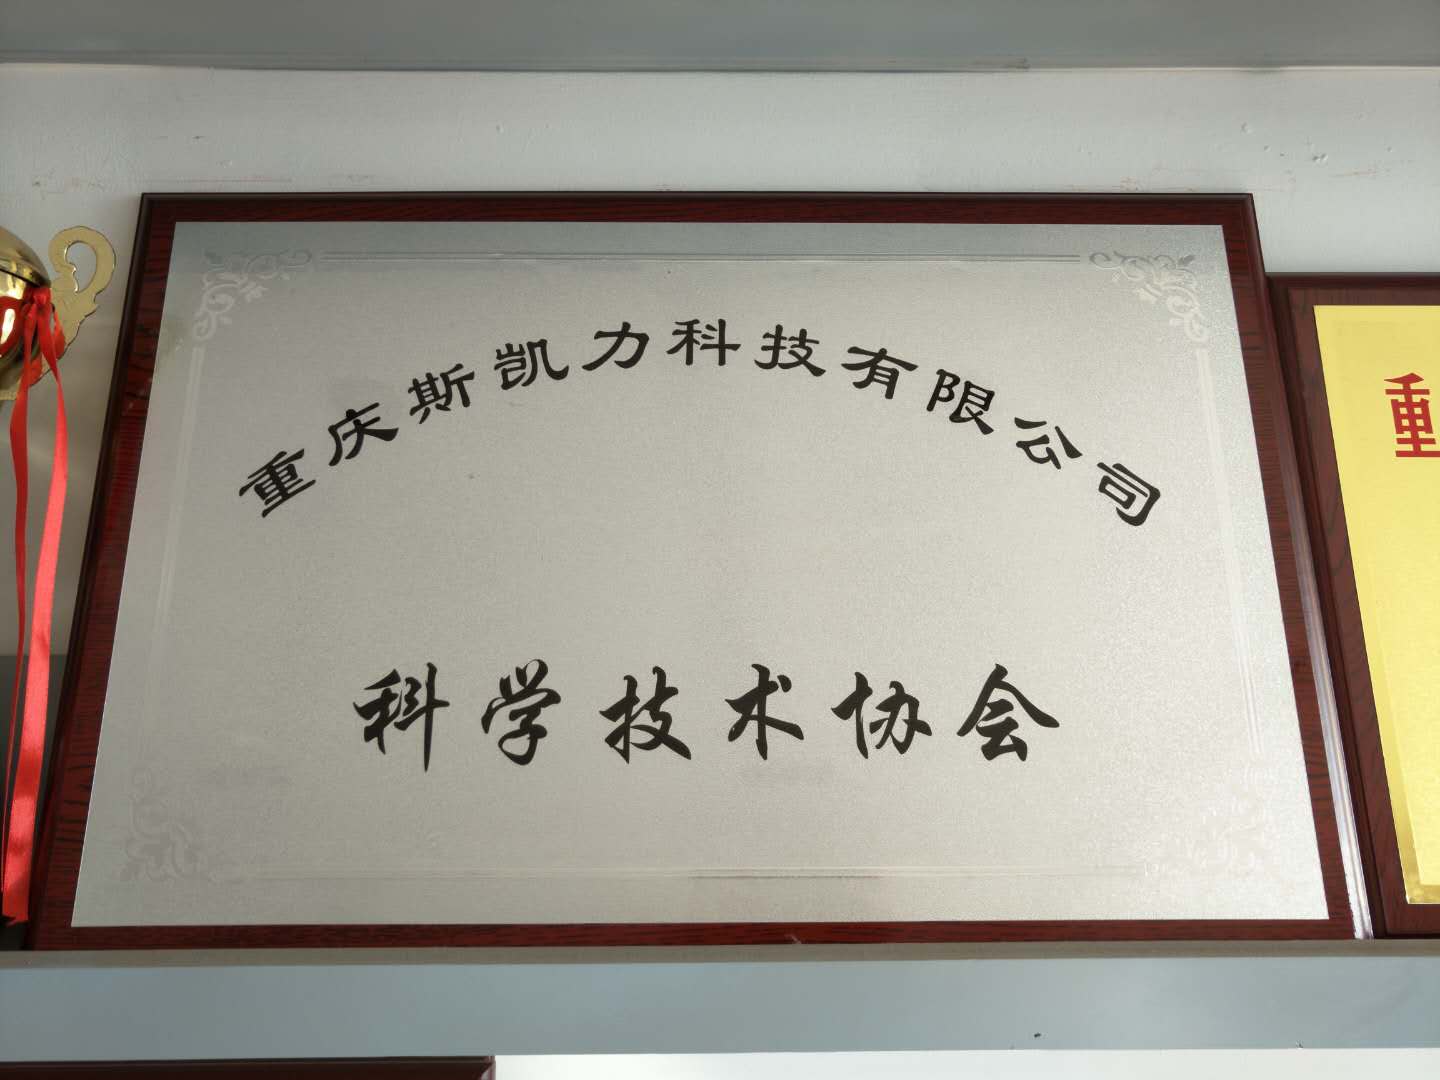 重庆斯凯力科技有限公司
科学技术协会
重